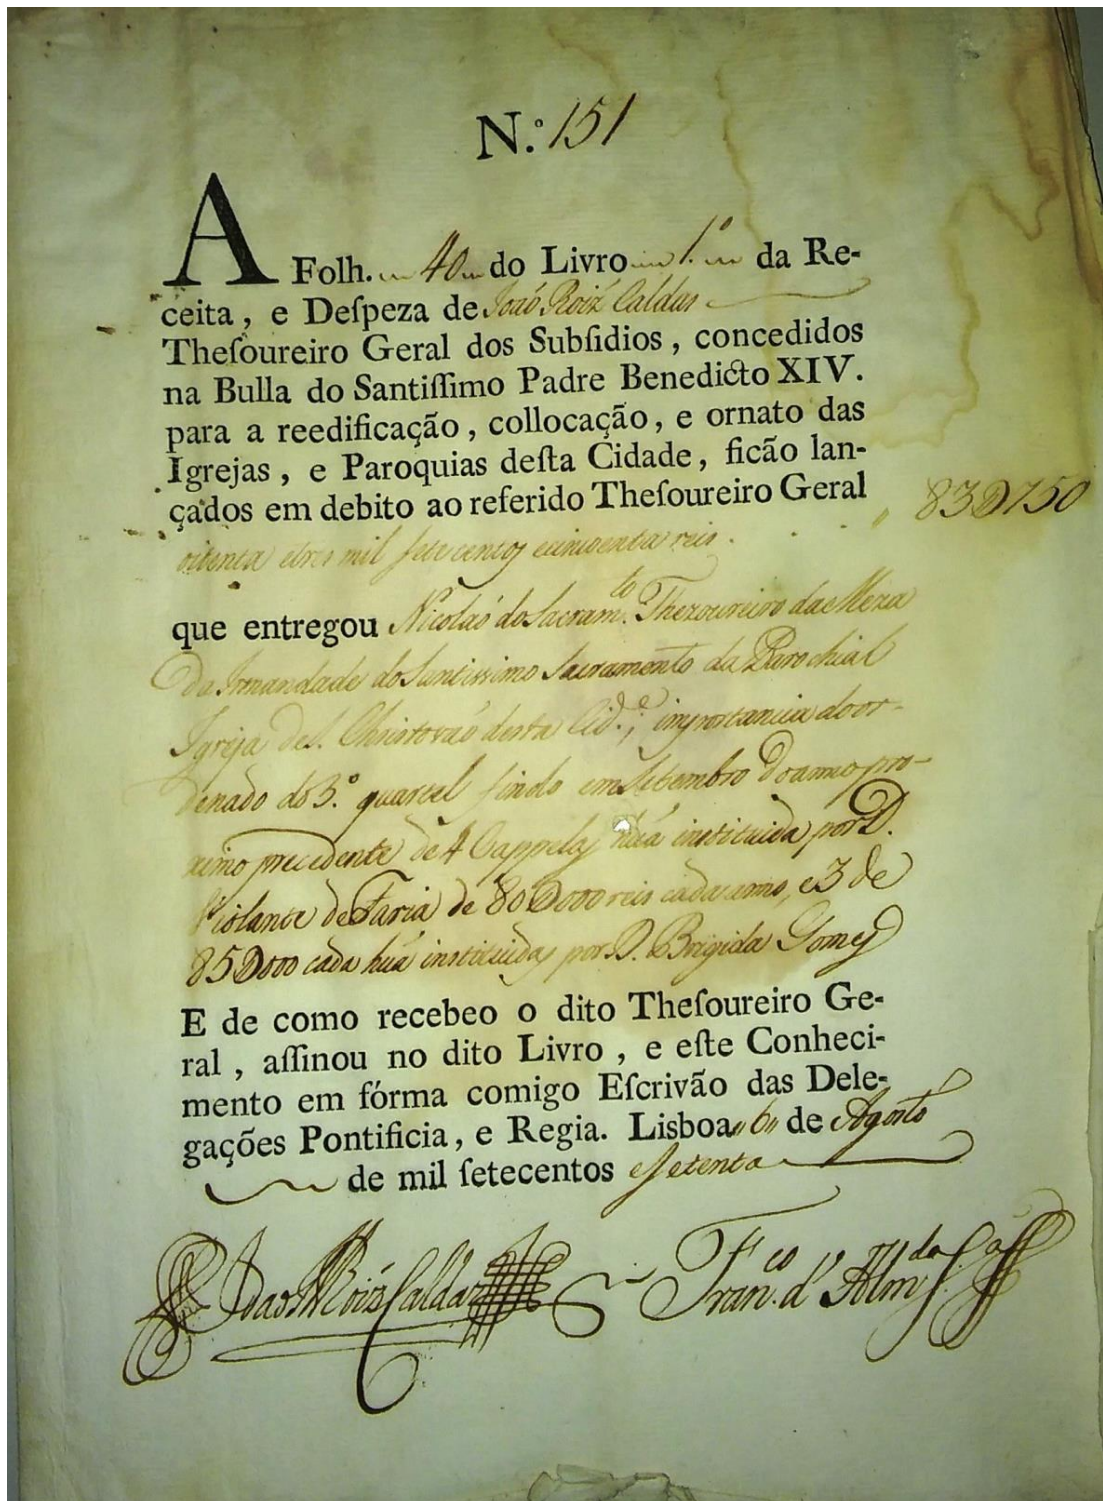 N.º 151
A Folh. 40 do Livro 1.º da Re-
ceita, e Deſpeza de Joaõ Roiz Caldas
Theſoureiro Geral dos Subſidios, concedidos
na Bulla do Santiſſimo Padre Benedicto XIV.
para a reedificação, collocação, e ornato das
Igrejas, e Paroquias deſta Cidade, ficão lan-
çados em debito ao referido Theſoureiro Geral
" 83D750
oitenta etres mil ſete centos ecincoenta reis.
que entregou Nicoláo do Sacram.to Thezoureiro da Meza
Da Irmandade do Santissimo Sacramento da Parochial
Igreja de S. Christovaõ desta Cid.e; importancia do or-
denado do 3.º quartel findo em Setembro do anno pro-
ximo precedente de 4 Cappelas huã instituida por D.
Violante de Faria de 80D000 reis cada anno, e 3 de
85D000 cada huã instituidas por D. Brigida Gomes
E de como recebeo o dito Theſoureiro Ge-
ral, aſſinou no dito Livro, e eſte Conheci-
mento em fórma comigo Eſcrivão das Dele-
gações Pontificia, e Regia. Lisboa "6" de Agosto
de mil ſetecentos e Setenta
Joaõ Roiz Caldas Fran.co d' Alm.da